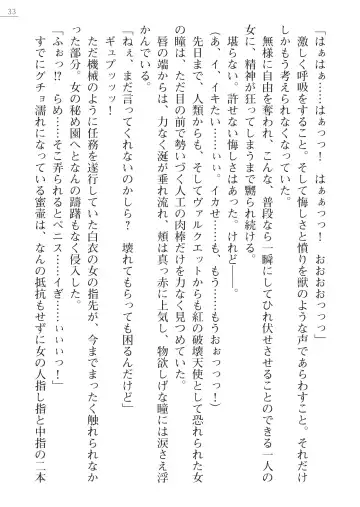 33
「はぁはぁ……はぁっっ！　はぁぁっっ！　おおおおっっっ」
激しく呼吸をすること。そして悔しさと憤りを獣のような声であらわすこと。それだけ
しかもう考えられなくなっていた。
無様に自由を奪われ、こんな、普段なら一瞬にしてひれ伏せさせることのできる一人の
女に、精神が狂ってしまうまで嬲られ続ける。
堪らない。許せない悔しさは堪らなかった。けれど――。
（あ、イ、イキたい……ぃぃ。イカせ……も、もう……もうぉぉっっっ！）
先日まで、人類からも、そしてヴァルクエットからも紅の破壊天使として恐れられた女
の瞳は、ただ目の前で勢いづく人工の肉棒だけを力なく見つめていた。
唇の端からは、力なく涎が垂れ流れ、頬は真っ赤に上気し、物欲しげな瞳には涙さえ浮
かんでいる。
「ねぇ、まだ言ってくれないのかしら？　壊れてもらっても困るんだけど」
ギュプッッッ！
ただ機械のように任務を遂行していた白衣の女の指先が、今までまったく触れられなか
った部分。女の秘め園へとなんの躊躇もなく侵入した。
「ふぉっ!?　らめ……そこ弄られるとペニス……イぎ……ぃぃぃっ！」
すでにグチョ濡れになっている蜜壺は、なんの抵抗もせずに女の人指し指と中指の二本